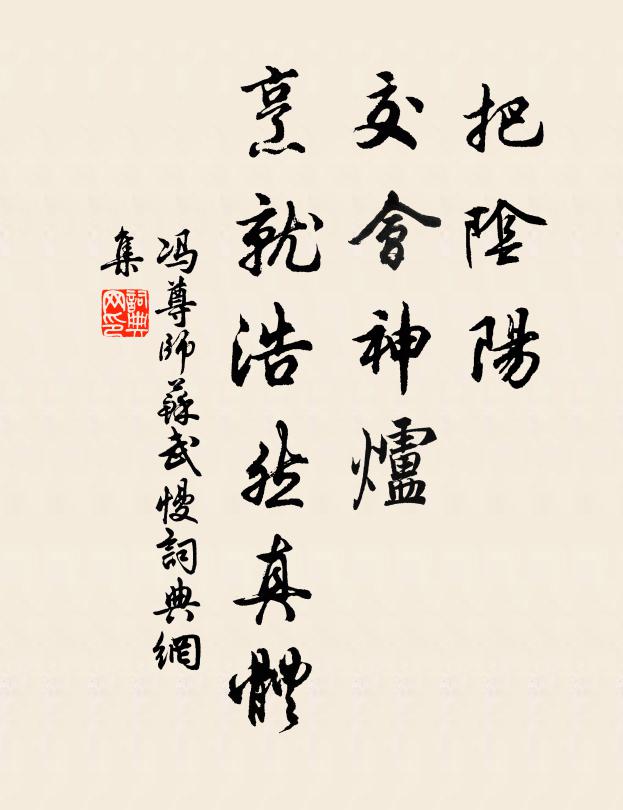 把陰陽
交會神爐
烹就浩然真體
馮尊師蘇武慢詞典網
集
詞典
网印